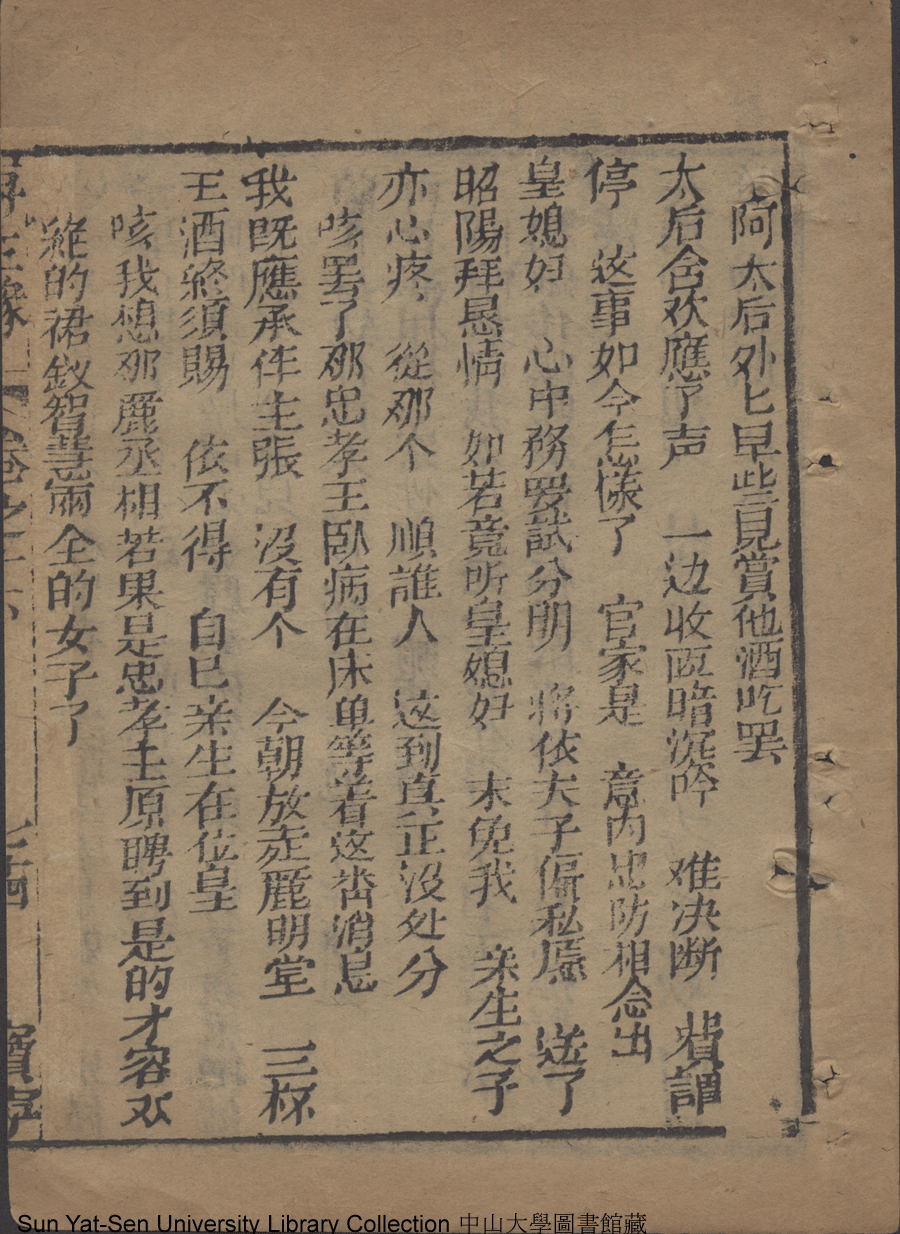 阿太后外匕早些見賞他酒吃罢
太后含欢應了声　一边收匝暗沉吟　难决断　費調
停　这事如今怎樣了　官家是　意内思防相念出
皇媳妇　心中務要試分明　將依天子偏私愿　送了
昭陽拜恳情　如若竟听皇媳妇　未免我　亲生之子
亦心疼　從那个　順誰人　这到真正没处分
咳罢了那忠孝王卧病在床单等着这𠹌消息
我既應承作主張　没有个　今朝放走麗明堂　三杯
王酒終須賜　依不得　自巳亲生在位皇
咳我想那麗丞相若果是忠孝王原聘到是的才容双
絶的裙釵智慧兩全的女子了
再生緣　卷之十六　七四　寶寧
Sun Yat-Sen University Library Collection 中山大學圖書館藏